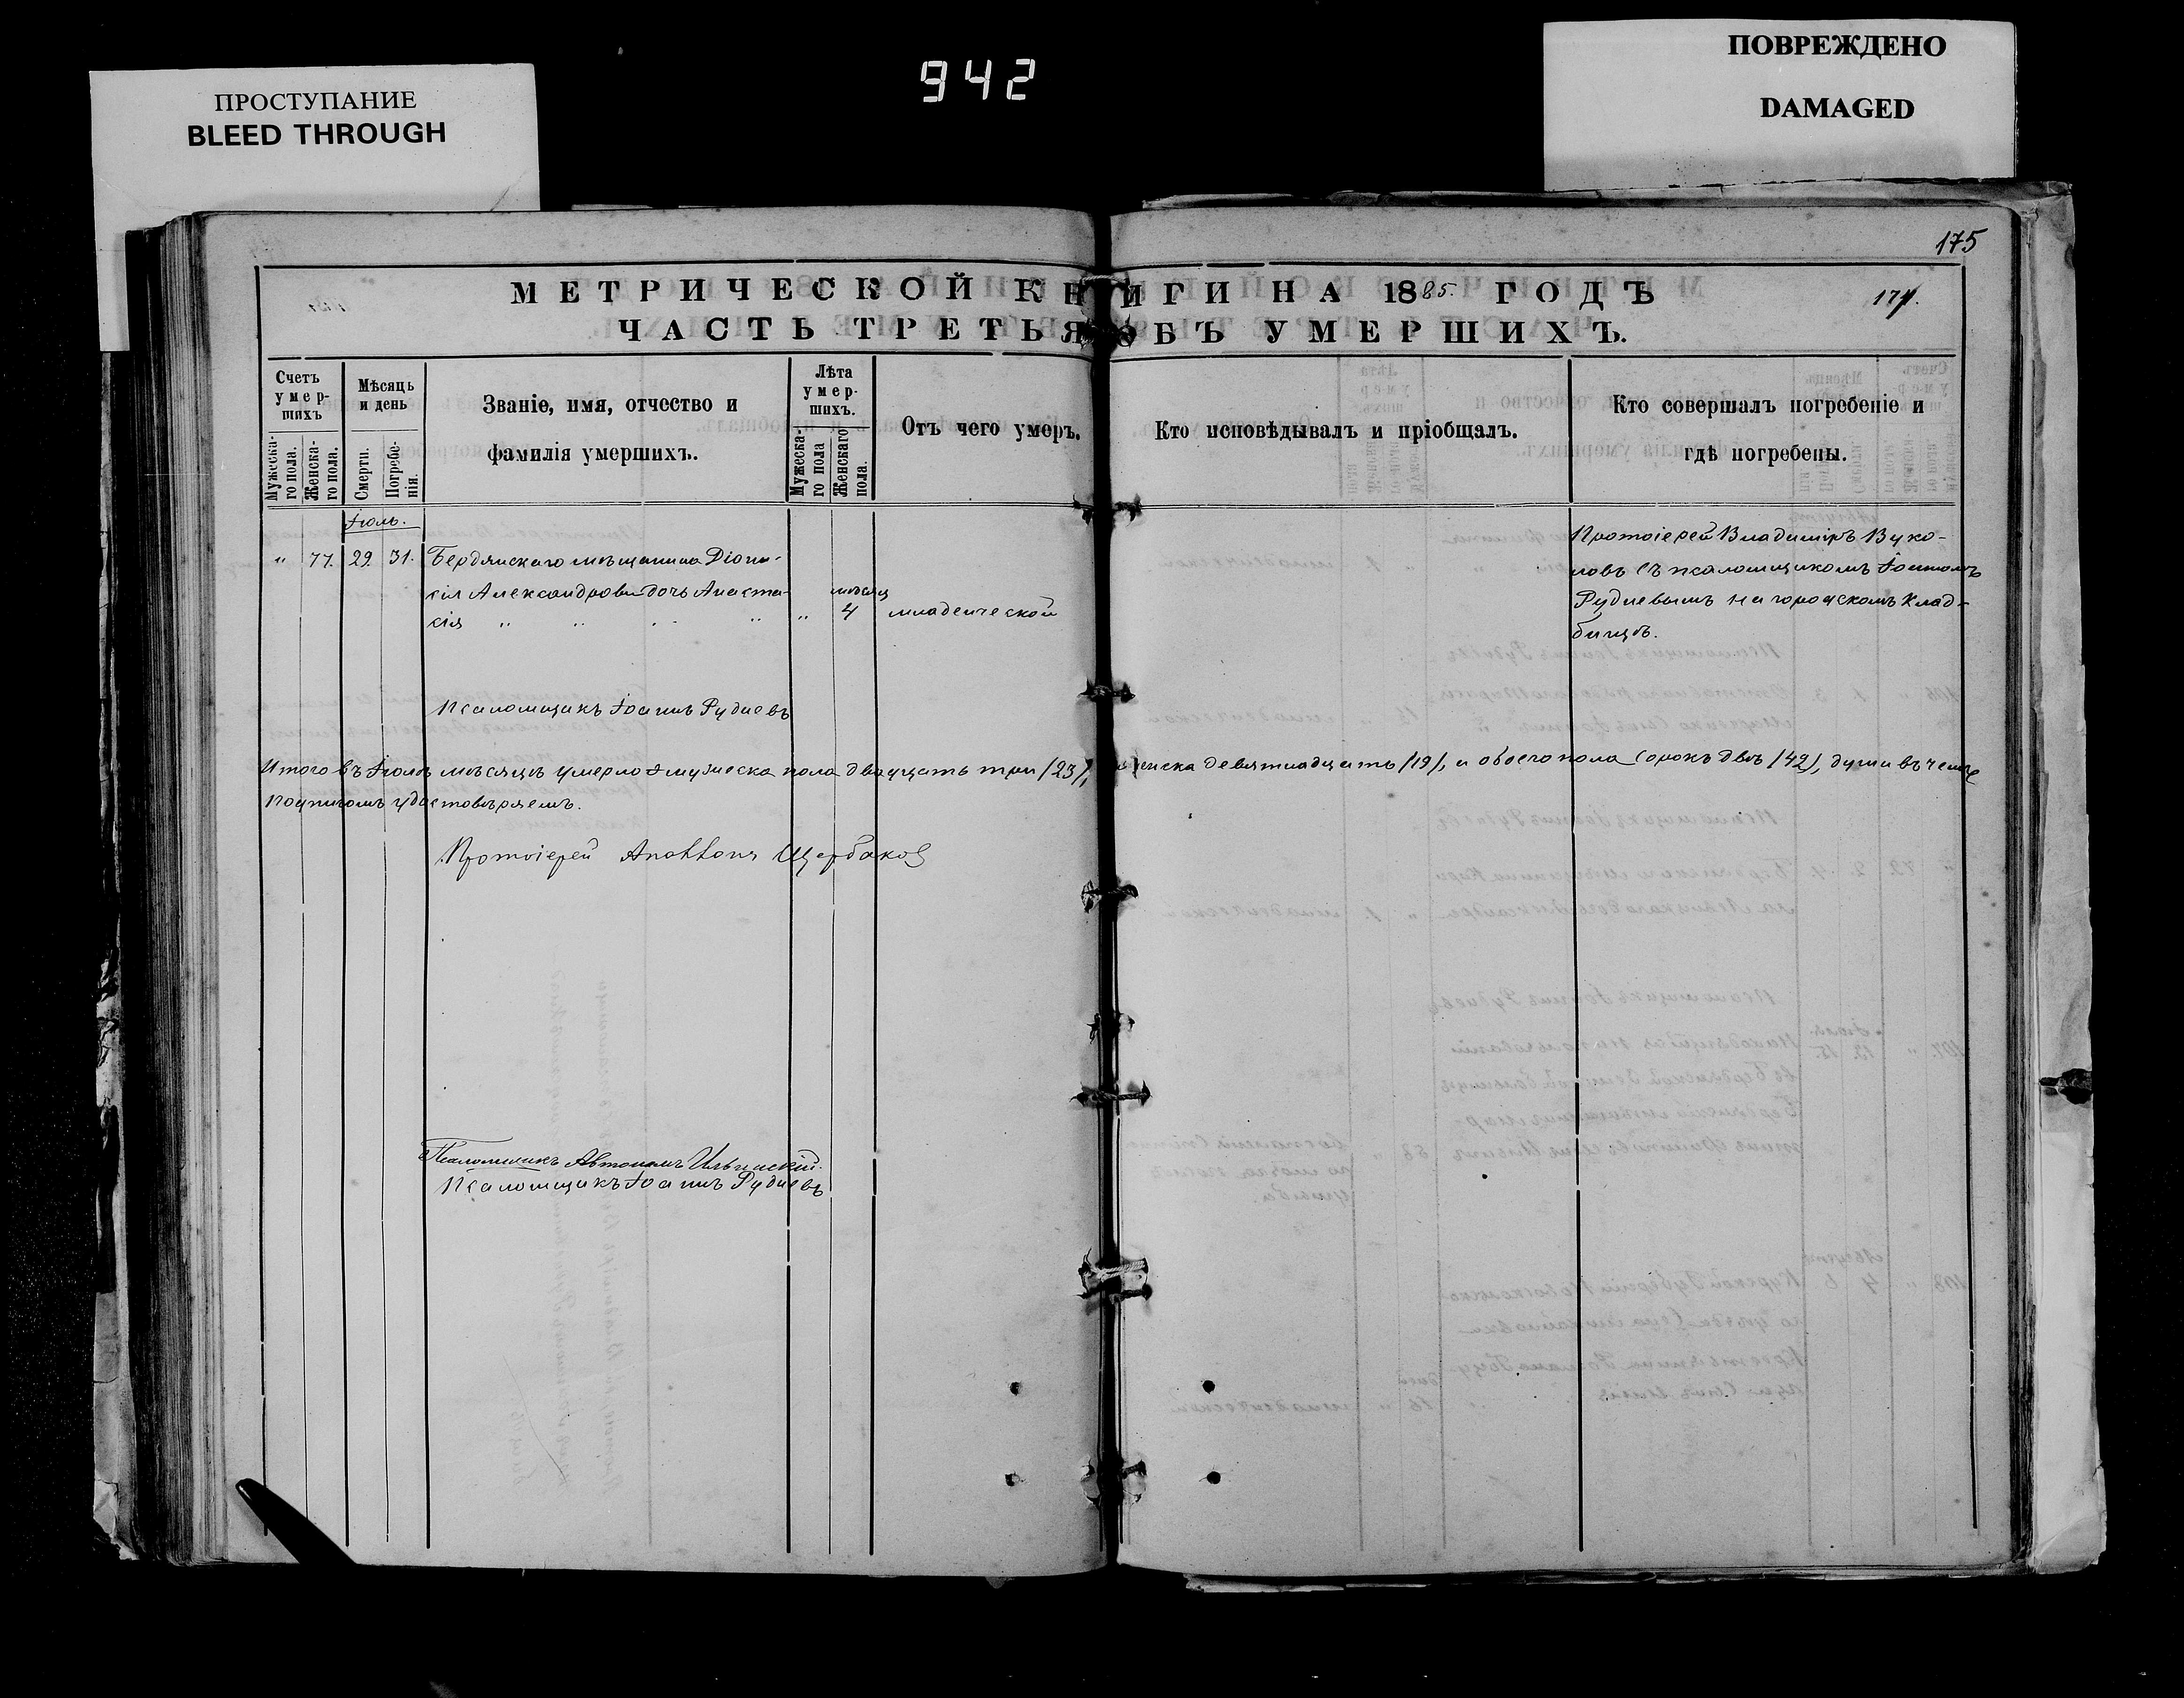 942
ПРОСТУПАНИЕ
BLEED THROUGH
ПОВРЕЖДЕНО
DAMAGED
175
МЕТРИЧЕСКОЙ КНИГИ НА 1885. ГОДЪ
174.
ЧАСТЬ ТРЕТЬЯ ОБЪ УМЕРШИХЪ.
Счетъ умер-шихъ
Мужеска-го пола.
Женска-го пола.
Мѣсяцъ и день
Смерти.
Погребе-нія.
Званіе, имя, отчество и
фамилія умершихъ.
Лѣта умер-шихъ.
Мужеска-го пола
Женскаго пола.
Отъ чего умеръ.
Кто исповѣдывалъ и пріобщалъ.
Кто совершалъ погребеніе и
гдѣ погребены.
Іюль.
" 77. 29. 31. Бердянскаго мѣщанина Діони-
сія Александрова дочь Анаста-
сія " " " " "
мѣсяц
4 младенческой
Протоіерей Владиміръ Вуко-
ловъ съ псаломщикомъ Іоанномъ
Рудневымъ на городскомъ клад-
бищѣ.
Псаломщикъ Іоаннъ Рудневъ
Итого въ Іюлѣ мѣсяцѣ умерло мужеска пола двадцать три /23/, женска девятнадцать /19/, и обоего пола сорокъ двѣ /42/, души въ чемъ
подписомъ удостовѣряемъ.
Протоіерей Аполлонъ Щербаков
Псаломщикъ Автономъ Ильинскій.
Псаломщикъ Іоаннъ Рудневъ